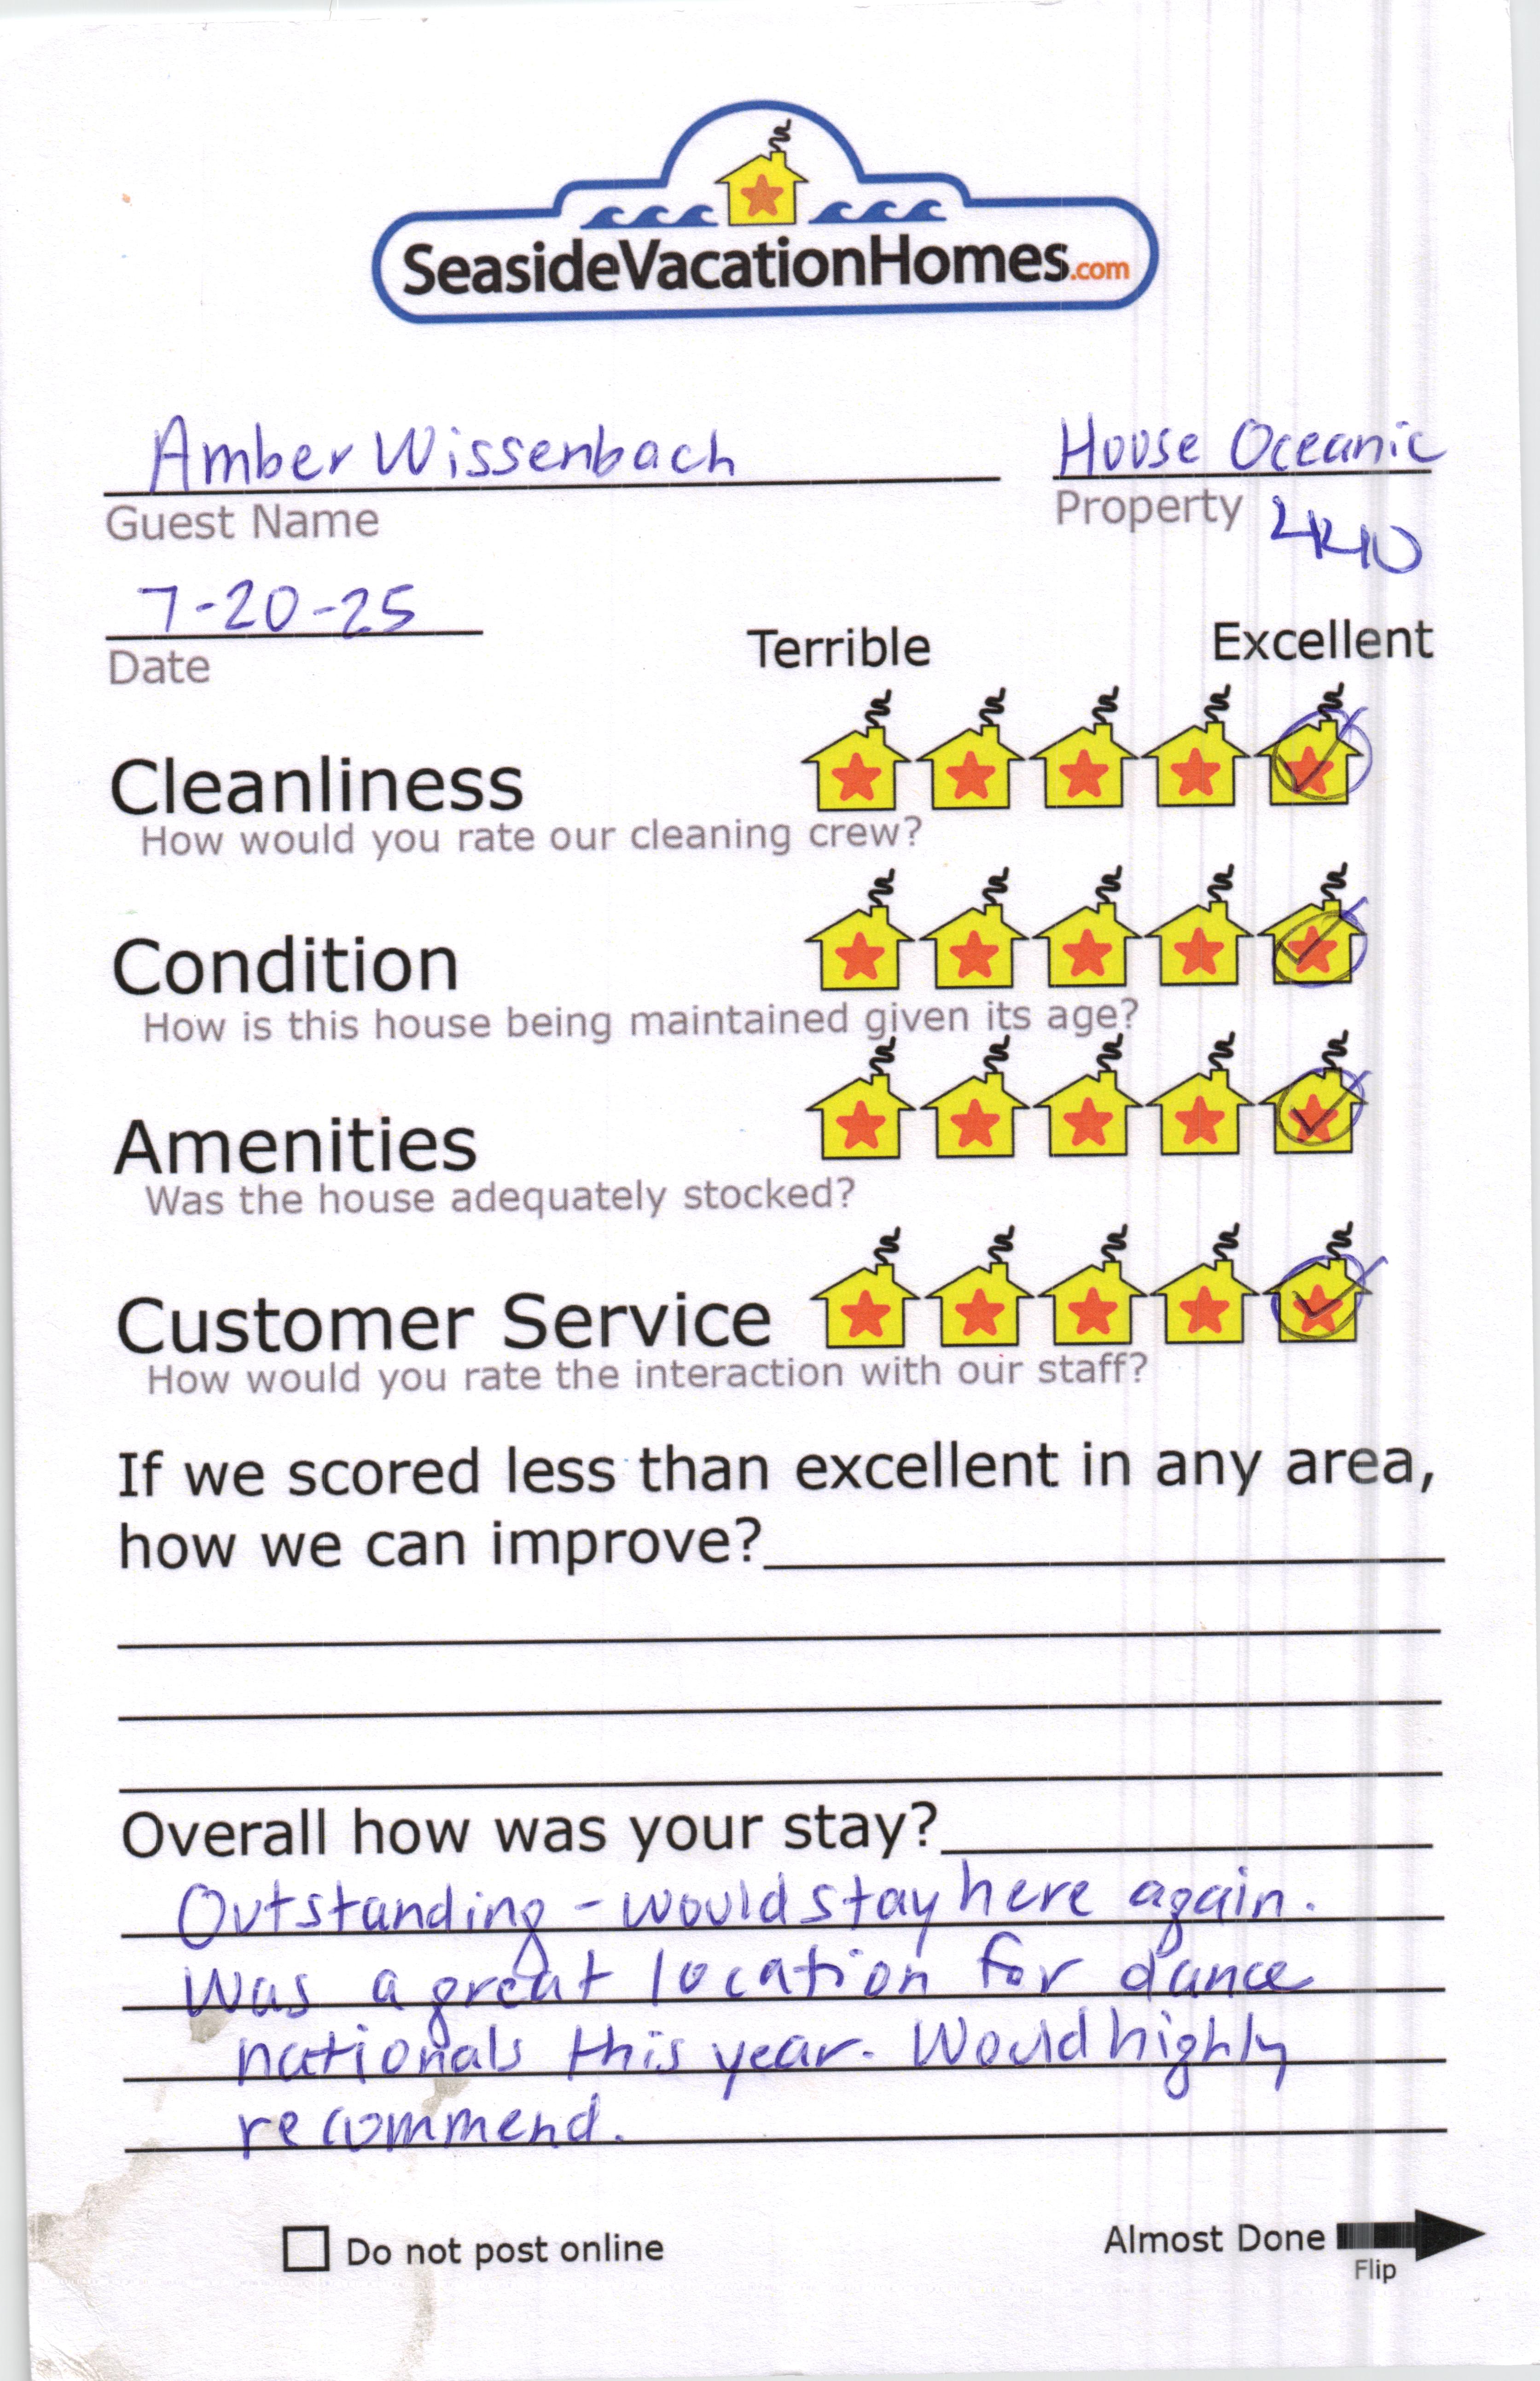 SeasideVacationHomes.com
Amber Wissenbach House Oceanic
Guest Name Property
7-20-25
Date
Terrible Excellent
Cleanliness
How would you rate our cleaning crew?
Condition
How is this house being maintained given its age?
Amenities
Was the house adequately stocked?
Customer Service
How would you rate the interaction with our staff?
If we scored less than excellent in any area,
how we can improve?
Overall how was your stay?
Outstanding - would stay here again.
Was a great location for dance
nationals this year. Would highly
recommend.
Do not post online Almost Done
Flip